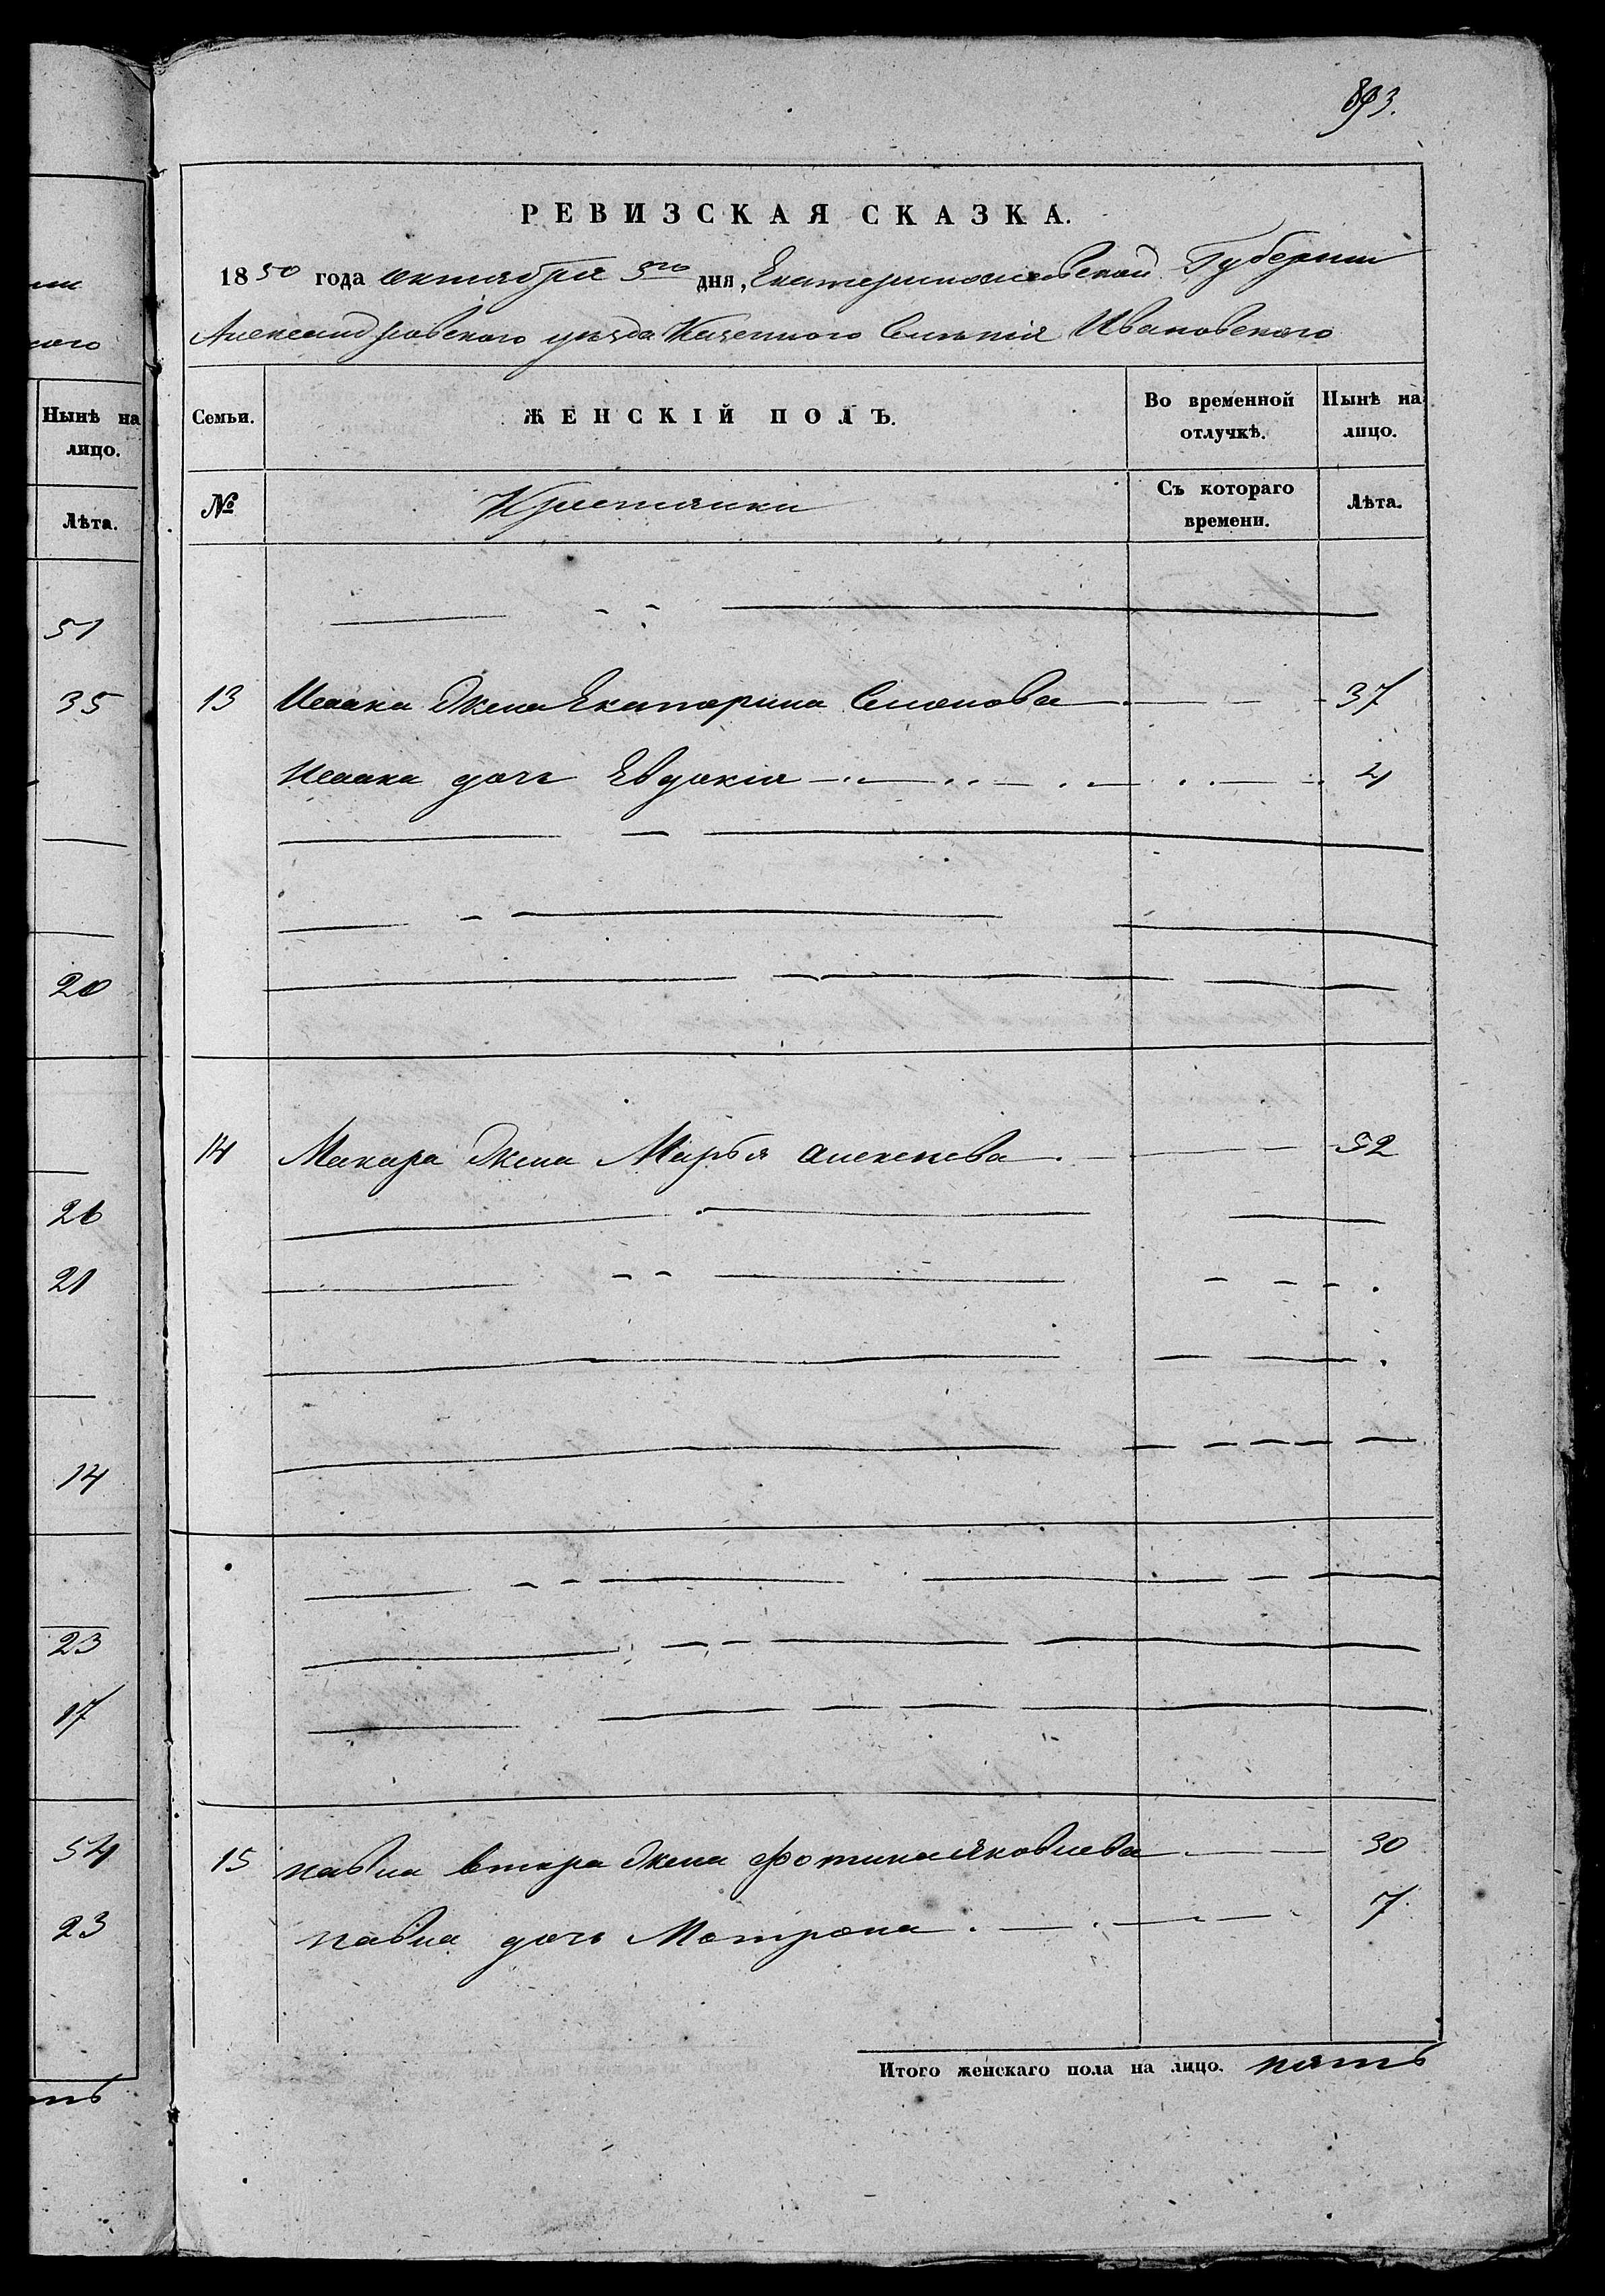 893.
РЕВИЗСКАЯ СКАЗКА.
1850 года октября 5го дня, Екатеринославской Губернии
Александровского уезда Казенного Селения Ивановского
Нынѣ на лицо.
Лѣта.
51
35
20
26
21
14
23
17
54
23
Семьи. ЖЕНСКІЙ ПОЛЪ. Во временной отлучкѣ. Нынѣ на лицо.
№ Крестянки Съ котораго времени. Лѣта.
13 Исаака жена Екатерина Семенова 37
Исаака дочь Евдокія 4
14 Макара жена Марья Алексеева 52
15 павла втора жена Фотина Яковлева 30
павла дочь Мотрона 7
Итого женскаго пола на лицо. пять